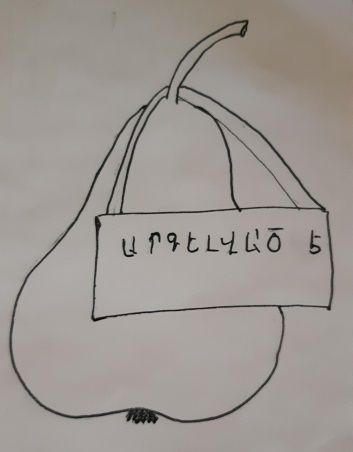 ԱՐԳԵԼՎԱԾ Է